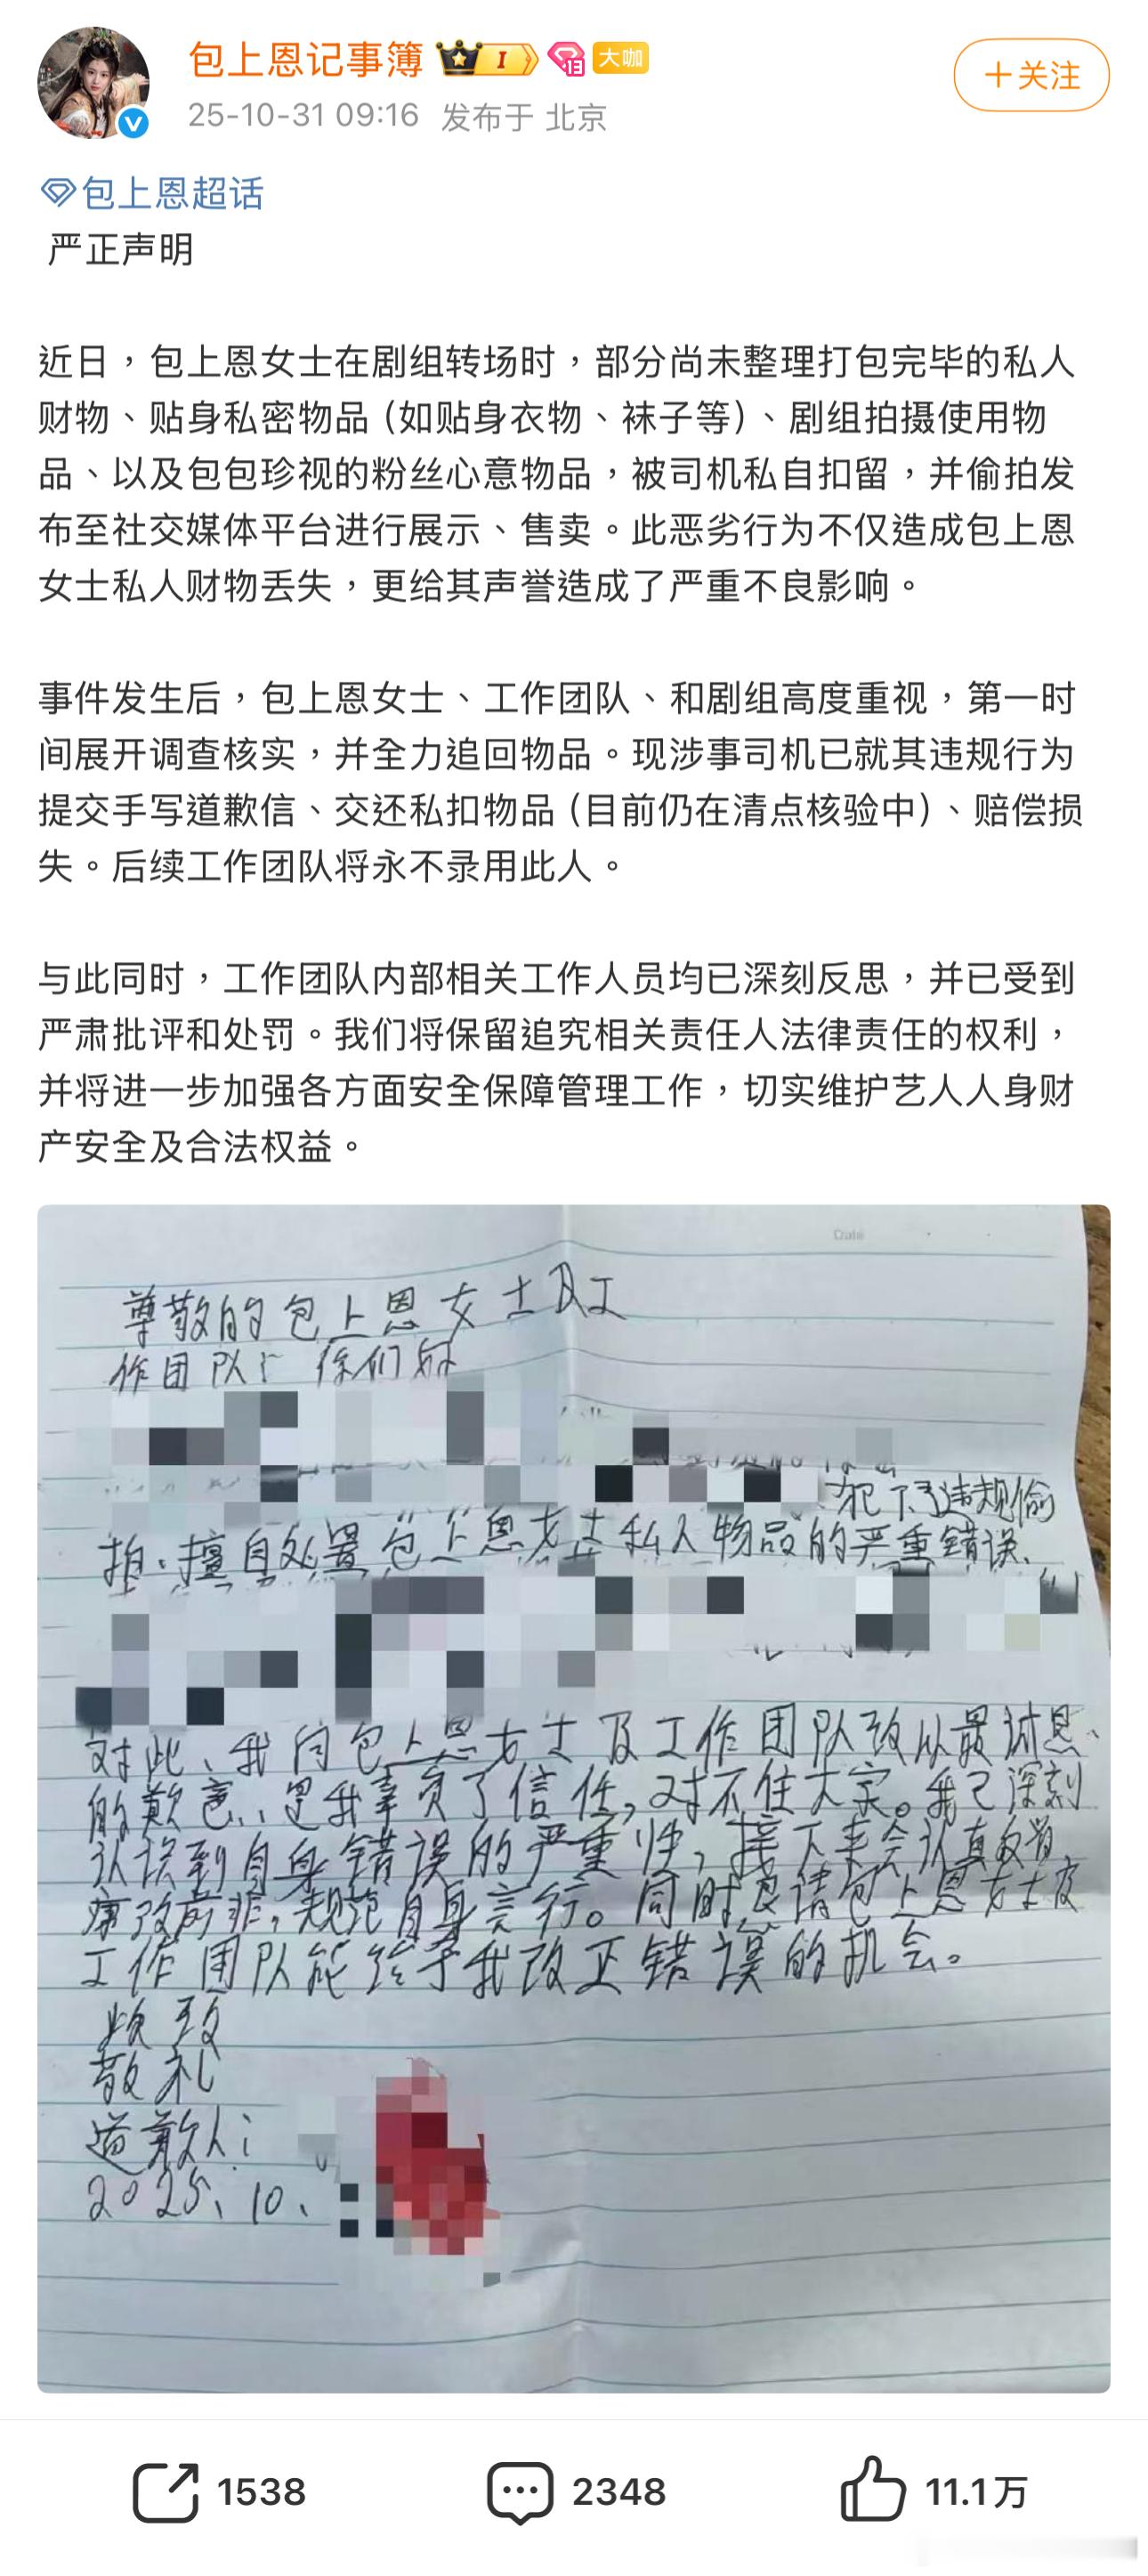 包上恩记事簿 I 大咖
25-10-31 09:16 发布于 北京
+关注
包上恩超话
严正声明
近日，包上恩女士在剧组转场时，部分尚未整理打包完毕的私人
财物、贴身私密物品（如贴身衣物、袜子等）、剧组拍摄使用物
品、以及包包珍视的粉丝心意物品，被司机私自扣留，并偷拍发
布至社交媒体平台进行展示、售卖。此恶劣行为不仅造成包上恩
女士私人财物丢失，更给其声誉造成了严重不良影响。
事件发生后，包上恩女士、工作团队、和剧组高度重视，第一时
间展开调查核实，并全力追回物品。现涉事司机已就其违规行为
提交手写道歉信、交还私扣物品（目前仍在清点核验中）、赔偿损
失。后续工作团队将永不录用此人。
与此同时，工作团队内部相关工作人员均已深刻反思，并已受到
严肃批评和处罚。我们将保留追究相关责任人法律责任的权利，
并将进一步加强各方面安全保障管理工作，切实维护艺人人身财
产安全及合法权益。
Date
尊敬的包上恩女士及工
作团队：你们好
犯下了违规偷
拍、擅自处置包上恩女士私人物品的严重错误、
对此、我向包上恩女士及工作团队致以最诚恳
的歉意、是我辜负了信任，对不住大家。我已深刻
认识到自身错误的严重性，接下来会认真
痛改前非，规范自身言行。同时恳请包上恩女士及
工作团队能给予我改正错误的机会。
此致
敬礼
道歉人：
2025、10、
1538
2348
11.1万